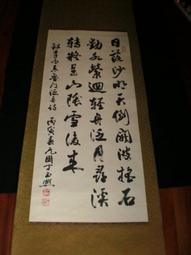 日落沙明天倒開波搖石
動水縈迴輕舟泛月尋溪
轉疑是山陰雪後來
魯门泛舟诗 丙寅春